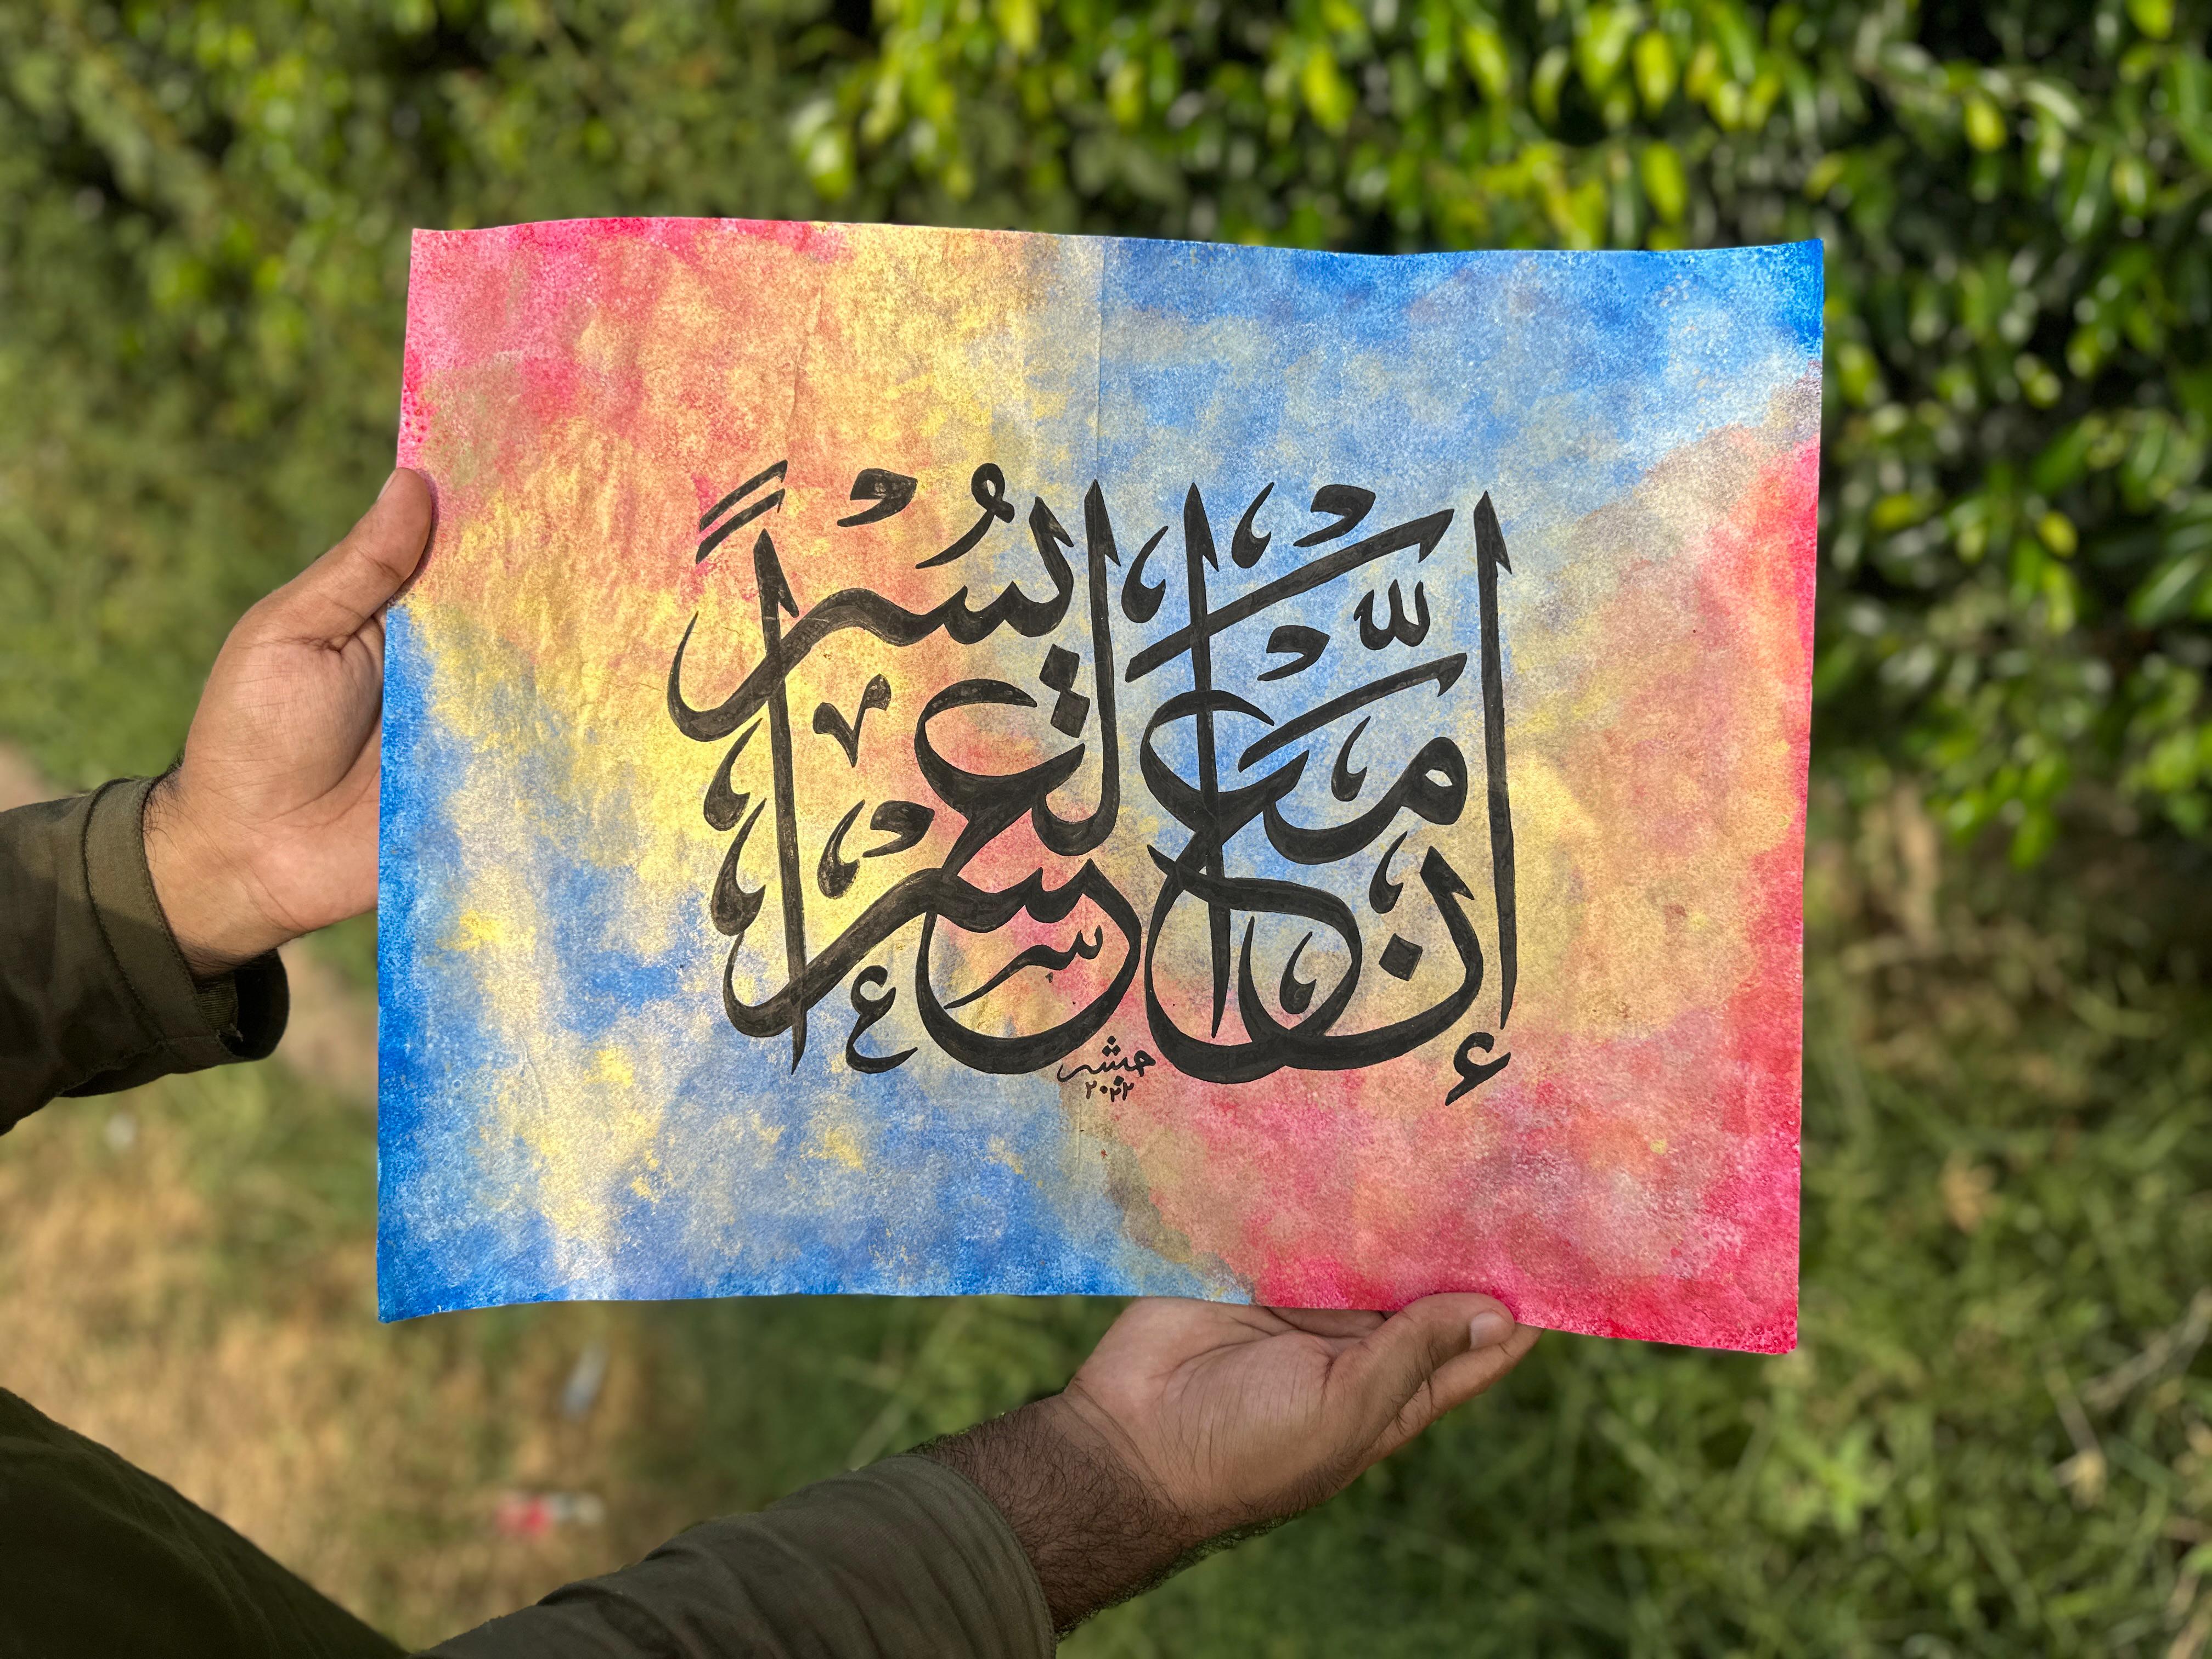 إِنَّ مَعَ الْعُسْرِ يُسْراً
٢٠٢٢